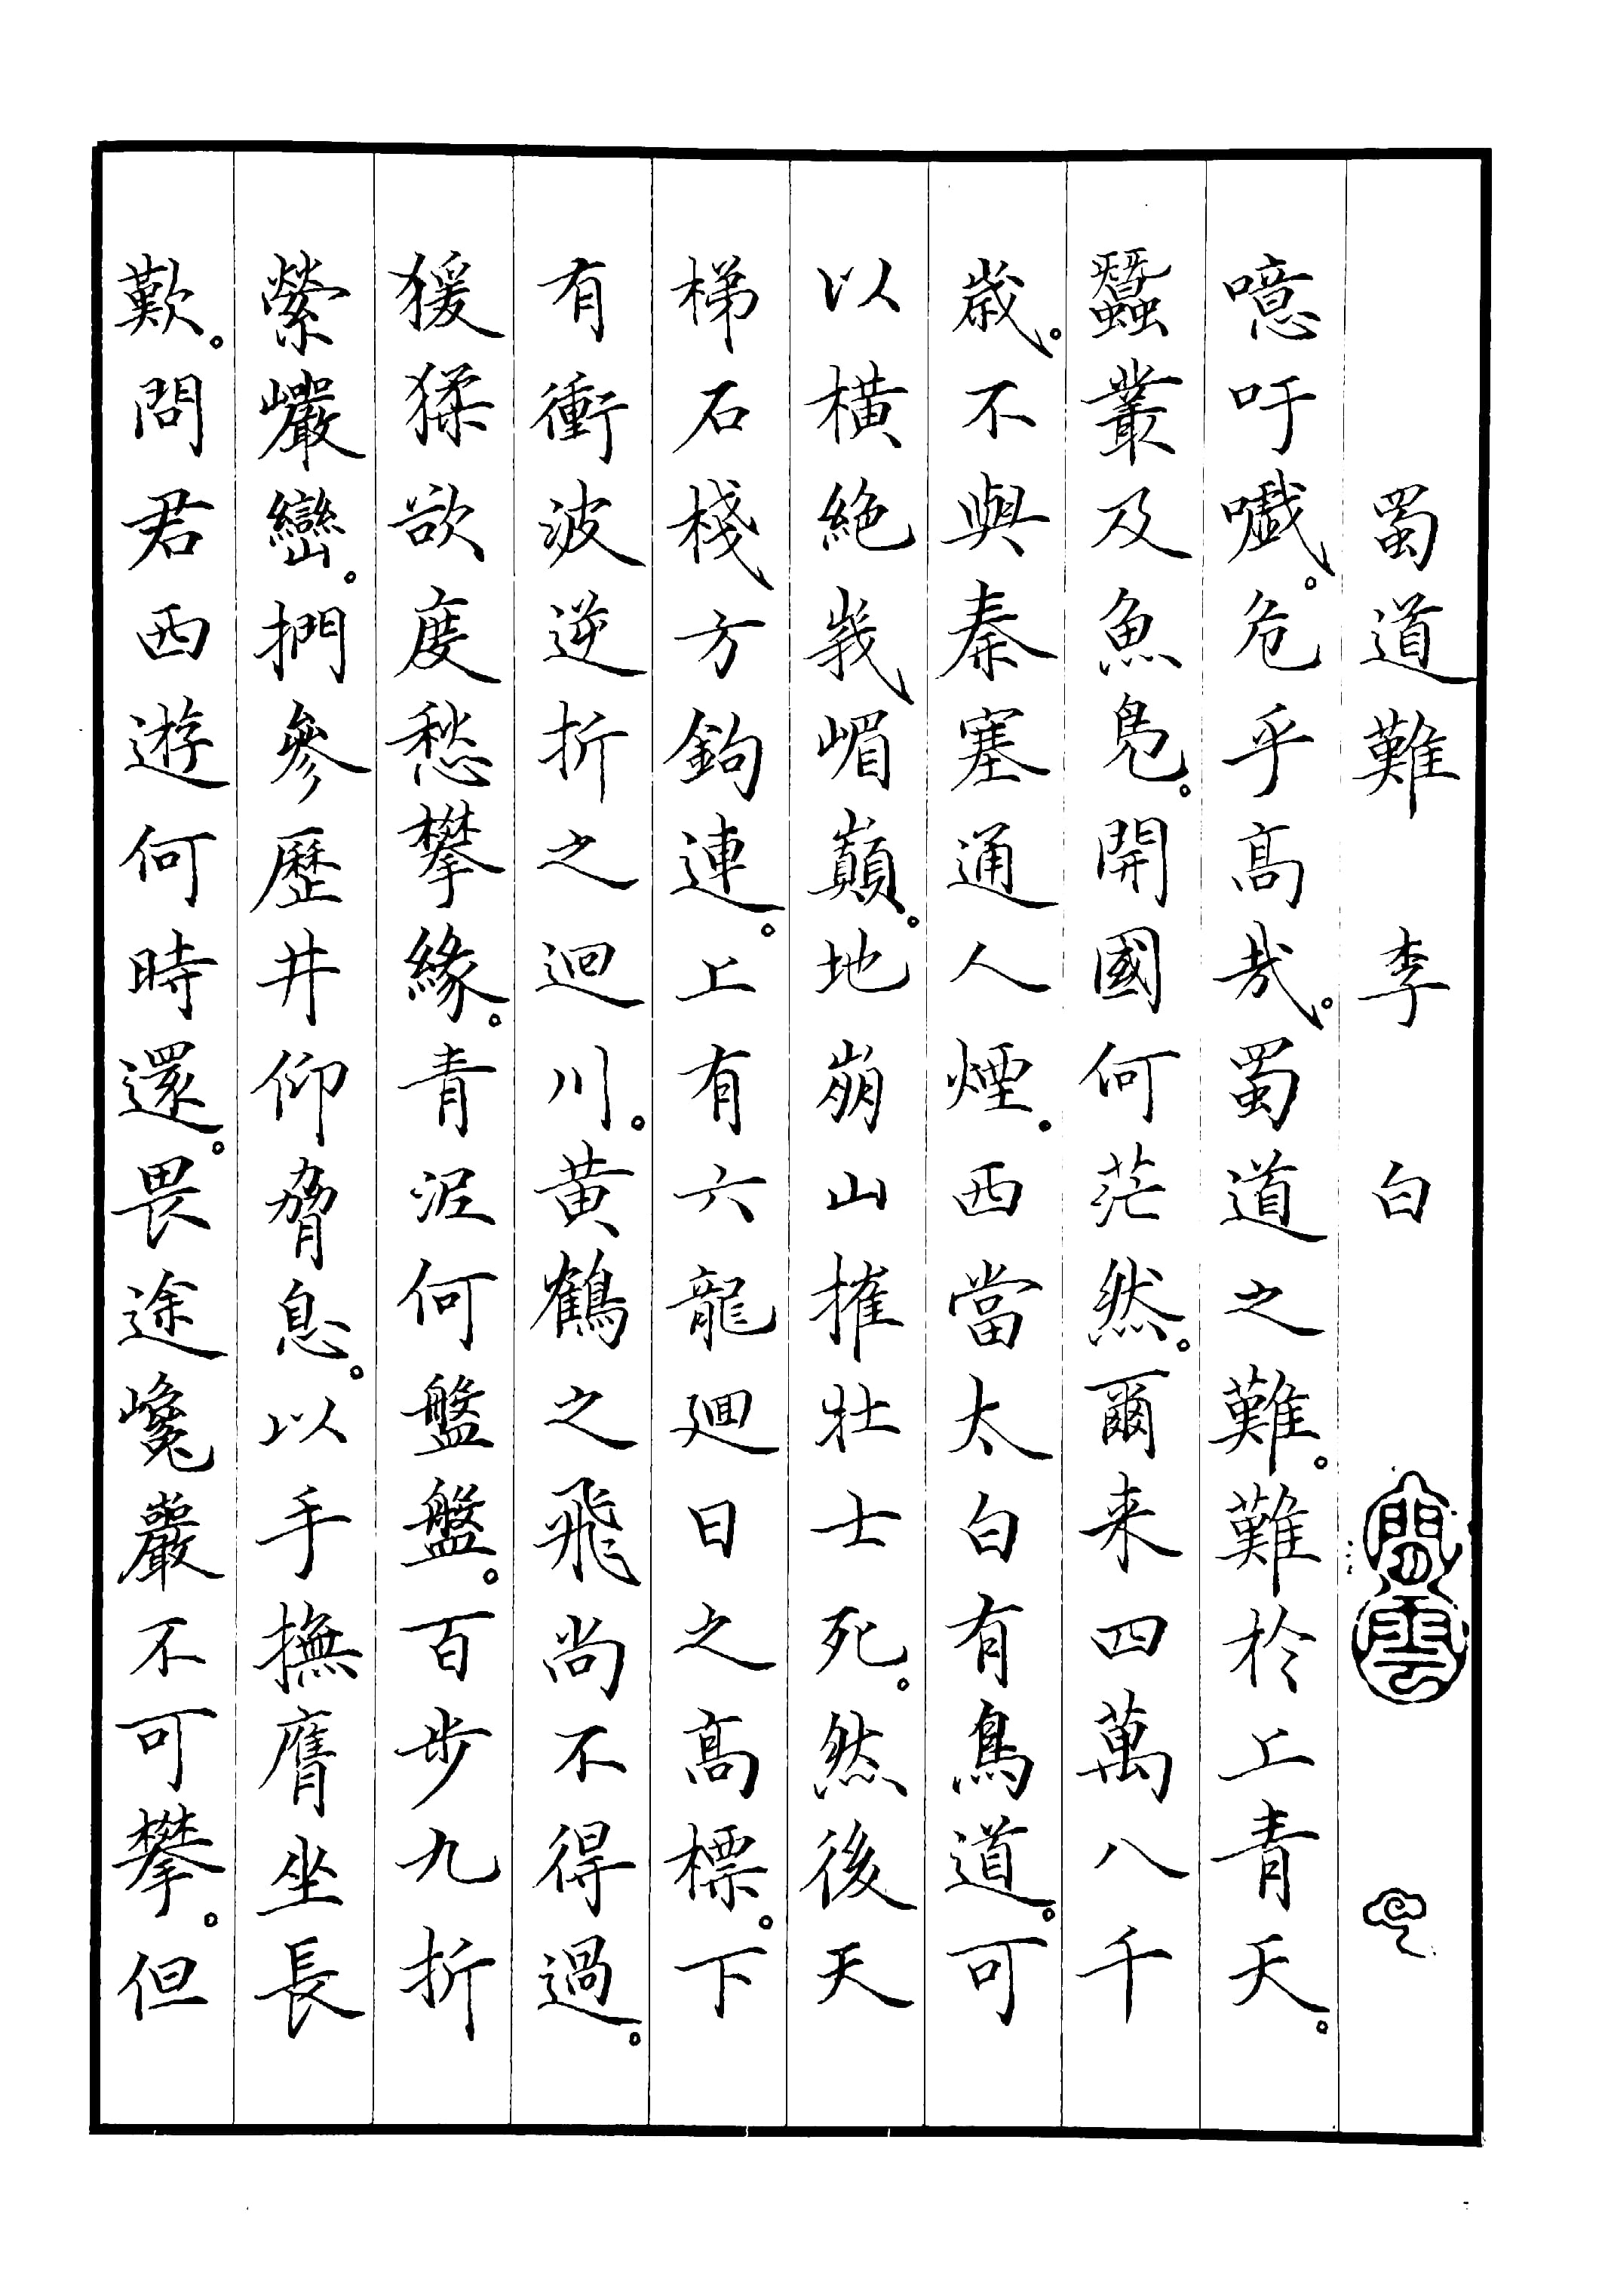 蜀道難 李白 閒雲
噫吁嚱。危乎高哉。蜀道之難。難於上青天。
蠶叢及魚鳧。開國何茫然。爾来四萬八千
歲。不與秦塞通人煙。西當太白有鳥道。可
以橫絶峩嵋巔。地崩山摧壯士死。然後天
梯石棧方鉤連。上有六龍廻日之高標。下
有衝波逆折之迴川。黄鶴之飛尚不得過。
猨猱欲度愁攀緣。青泥何盤盤。百步九折
縈巗巒。捫參歷井仰脅息。以手撫膺坐長
歎。問君西遊何時還。畏途巉巖不可攀。但